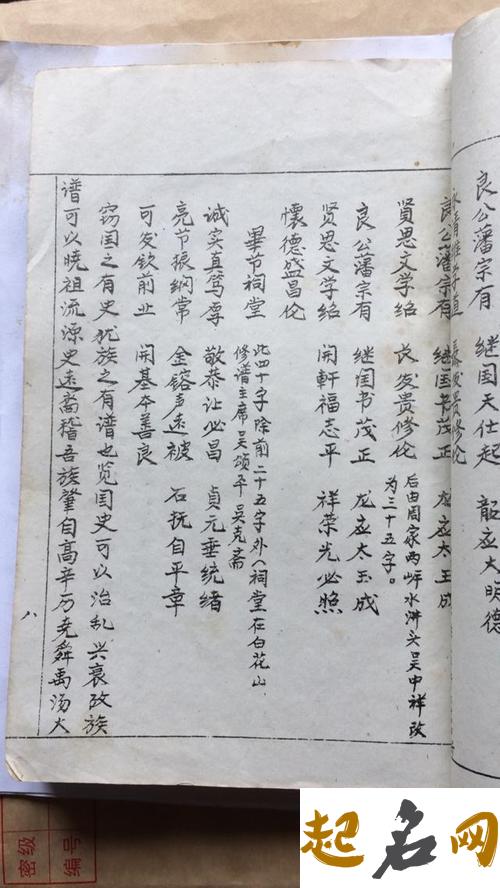 良公藩宗有 继国天仕起 韶应大明德
良公藩宗有 继国书茂正 龙应太玉成
贤思文学绍 长发贵修伦 后由周家两岍水浒头吴中祥改
为三十五字。
良公藩宗有 继国书茂正 龙应太玉成
贤思文学绍 開軒福志平 祥荣光必照
懷德盛昌伦
畢节祠堂 此四十字除前二十五字外(祠堂在白花山
修谱主席吴颂平吴克斋
诚实真笃厚 敬恭让必昌 贞元垂统绪
亮节振纲常 金镕声远被 石抚自平章
可发钦前业 開基本善良
窃国之有史犹族之有谱也览国史可以治乱兴衰攷族
谱可以晓祖流源史远稽吾族肇自高辛历尧舜禹汤大
八
密级
编号
起名网